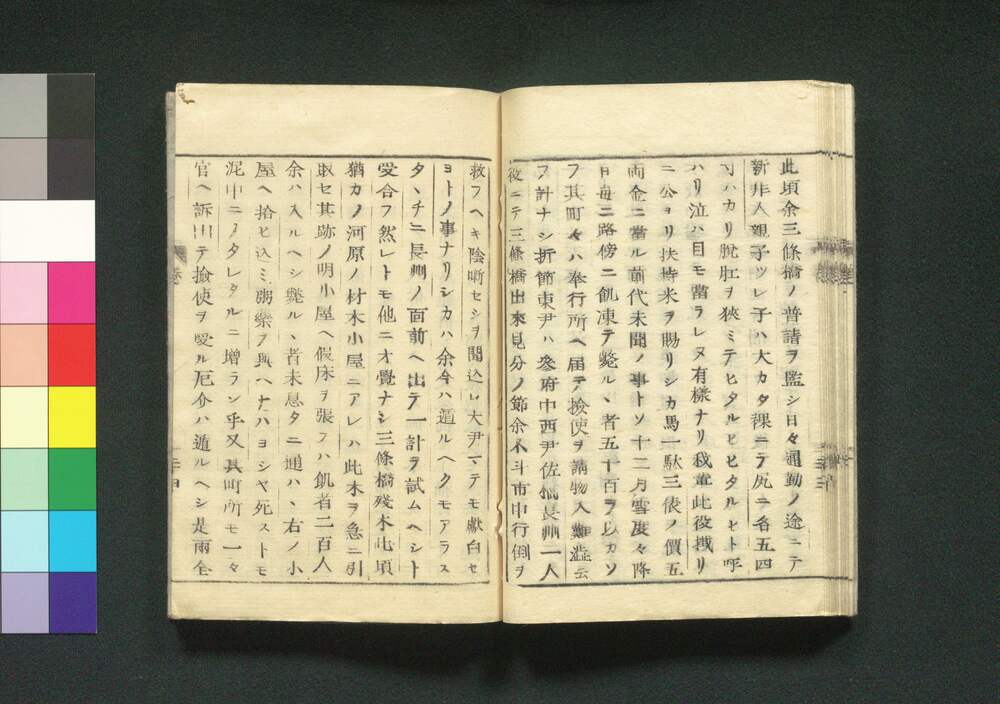 此頃余三條橋ノ普請ヲ監シ日々通勤ノ途ニテ
新非人親子ツレ子ハ大カタ裸ニテ尻ニ各五四
寸ハカリ脱肛ヲ狹ミテヒタルヒヒタルヒト呼
ハリ泣ハ目モ當ラレヌ有樣ナリ我輩此役拽リ
ニ公ヨリ扶持米ヲ賜リシカ馬一駄三俵ノ價五
両金ニ當ル前代未聞ノ事トソ十二月雪度々降
日毎ニ路傍ニ飢凍テ斃ル、者五十百ヲ以カソ
フ其町々ハ奉行所ヘ届テ撿使ヲ請物入難澁云
フ計ナシ折節東尹ハ參府中西尹佐橋長州一人
役ニテ三條橋出来見分ノ節余不斗市中行倒ヲ
救フヘキ陰噺セシヲ聞込レ大尹マテモ獻白セ
ヨトノ事ナリシカハ余今ハ遁ルヘクモアラス
タヽチニ長州ノ面前ヘ出テ一計ヲ試ムヘシト
受合フ然レトモ他ニオ覺ナシ三條橋殘木此頃
猶カノ河原ノ材木小屋ニアレハ此木ヲ急ニ引
取セ其跡ノ明小屋ヘ假床ヲ張ラハ飢者二百人
余ハ入ルヘシ斃ル、者未息タニ通ハ、右ノ小
屋ヘ拾ヒ込ミ粥藥ヲ與ヘナハヨシヤ死ストモ
泥中ニノタレタルニ増ラン乎又其町所モ一々
官ヘ訴出テ撿使ヲ受ル厄介ハ遁ルヘシ是兩全